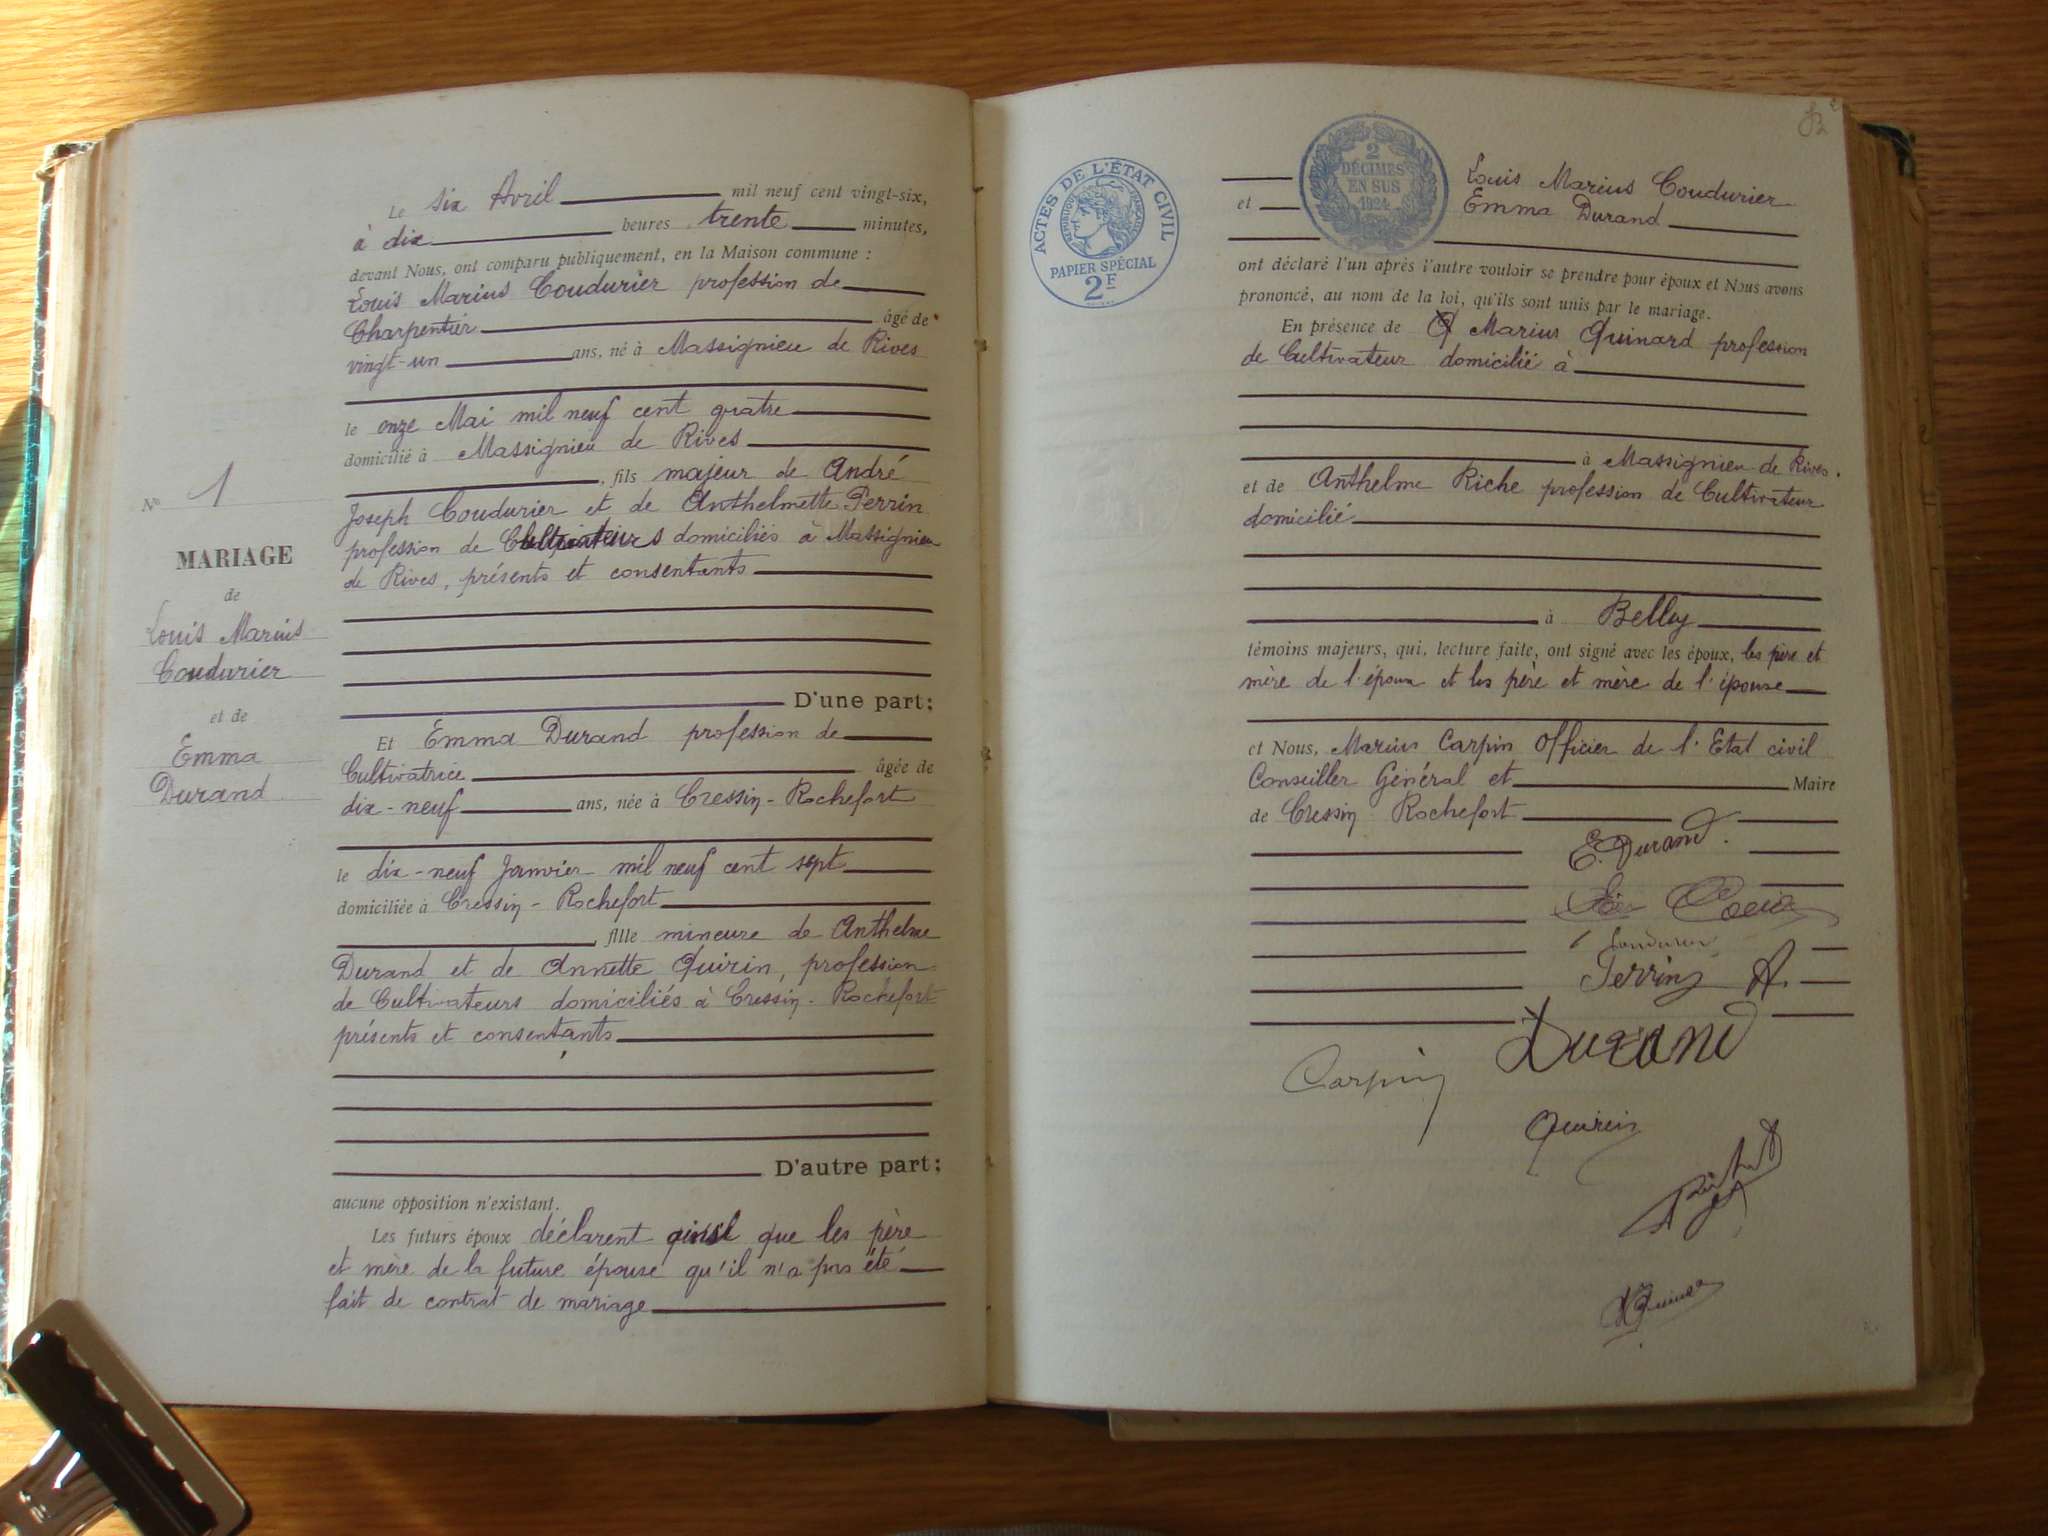 Le six Avril mil neuf cent vingt-six,
à dix heures trente minutes,
devant Nous, ont comparu publiquement, en la Maison commune :
Louis Marius Coudurier profession de
Charpentier âgé de
vingt-un ans, né à Massignieu de Rives
le onze Mai mil neuf cent quatre
domicilié à Massignieu de Rives
, fils majeur de André
Joseph Coudurier et de Anthelmette Perrin
profession de Cultivateurs domiciliés à Massignieu
de Rives, présents et consentants
D'une part;
Et Emma Durand profession de
Cultivatrice âgée de
dix-neuf ans, née à Cressin-Rochefort
le dix-neuf Janvier mil neuf cent sept
domiciliée à Cressin-Rochefort
, fille mineure de Anthelme
Durand et de Annette Quirin, profession
de Cultivateurs domiciliés à Cressin-Rochefort
présents et consentants
D'autre part;
aucune opposition n'existant.
Les futurs époux déclarent ainsi que les père
et mère de la future épouse qu'il n'a pas été
fait de contrat de mariage
No 1
MARIAGE
de
Louis Marius
Coudurier
et de
Emma
Durand
ACTES DE L'ÉTAT CIVIL
RÉPUBLIQUE FRANÇAISE
PAPIER SPÉCIAL
2F
2
DÉCIMES
EN SUS
1924
Louis Marius Coudurier
et Emma Durand
ont déclaré l'un après l'autre vouloir se prendre pour époux et Nous avons
prononcé, au nom de la loi, qu'ils sont unis par le mariage.
En présence de Marius Quinard profession
de Cultivateur domicilié à
à Massignieu de Rives.
et de Anthelme Riche profession de Cultivateur
domicilié
à Belley
témoins majeurs, qui, lecture faite, ont signé avec les époux, les père et
mère de l'époux et les père et mère de l'épouse
et Nous, Marius Carpin Officier de l'Etat civil
Conseiller Général et Maire
de Cressin Rochefort
E. Durand.
Perrin A.
Durand
Carpin
Quirin